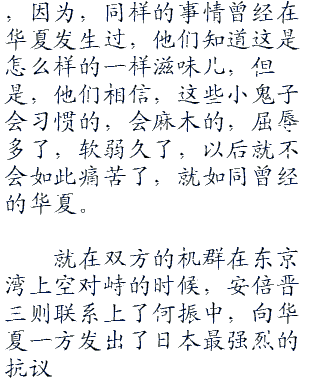 ，因为，同样的事情曾经在
华夏发生过，他们知道这是
怎么样的一样滋味儿，但
是，他们相信，这些小鬼子
会习惯的，会麻木的，屈辱
多了，软弱久了，以后就不
会如此痛苦了，就如同曾经
的华夏。
就在双方的机群在东京
湾上空对峙的时候，安倍晋
三则联系上了何振中，向华
夏一方发出了日本最强烈的
抗议